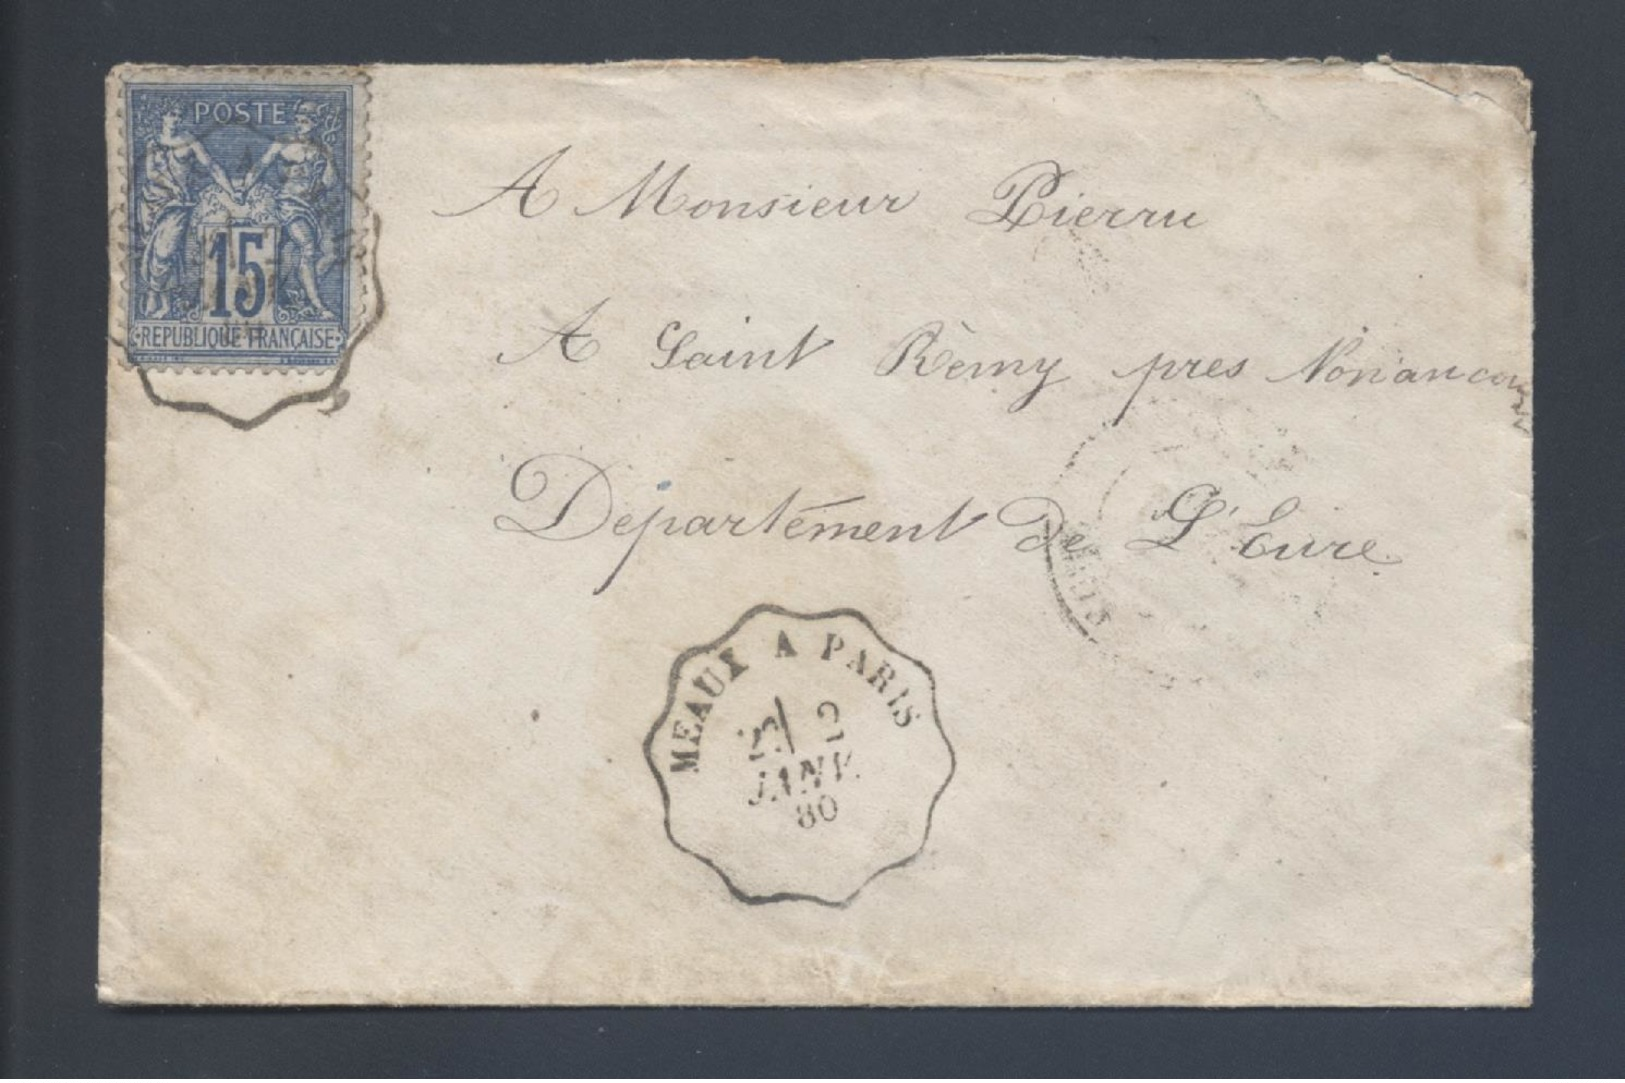 POSTE
15
REPUBLIQUE FRANÇAISE
A Monsieur Pierru
A Saint Rèmy près Nonancourt
Département de L'Eure
MEAUX A PARIS
2
JANV.
80